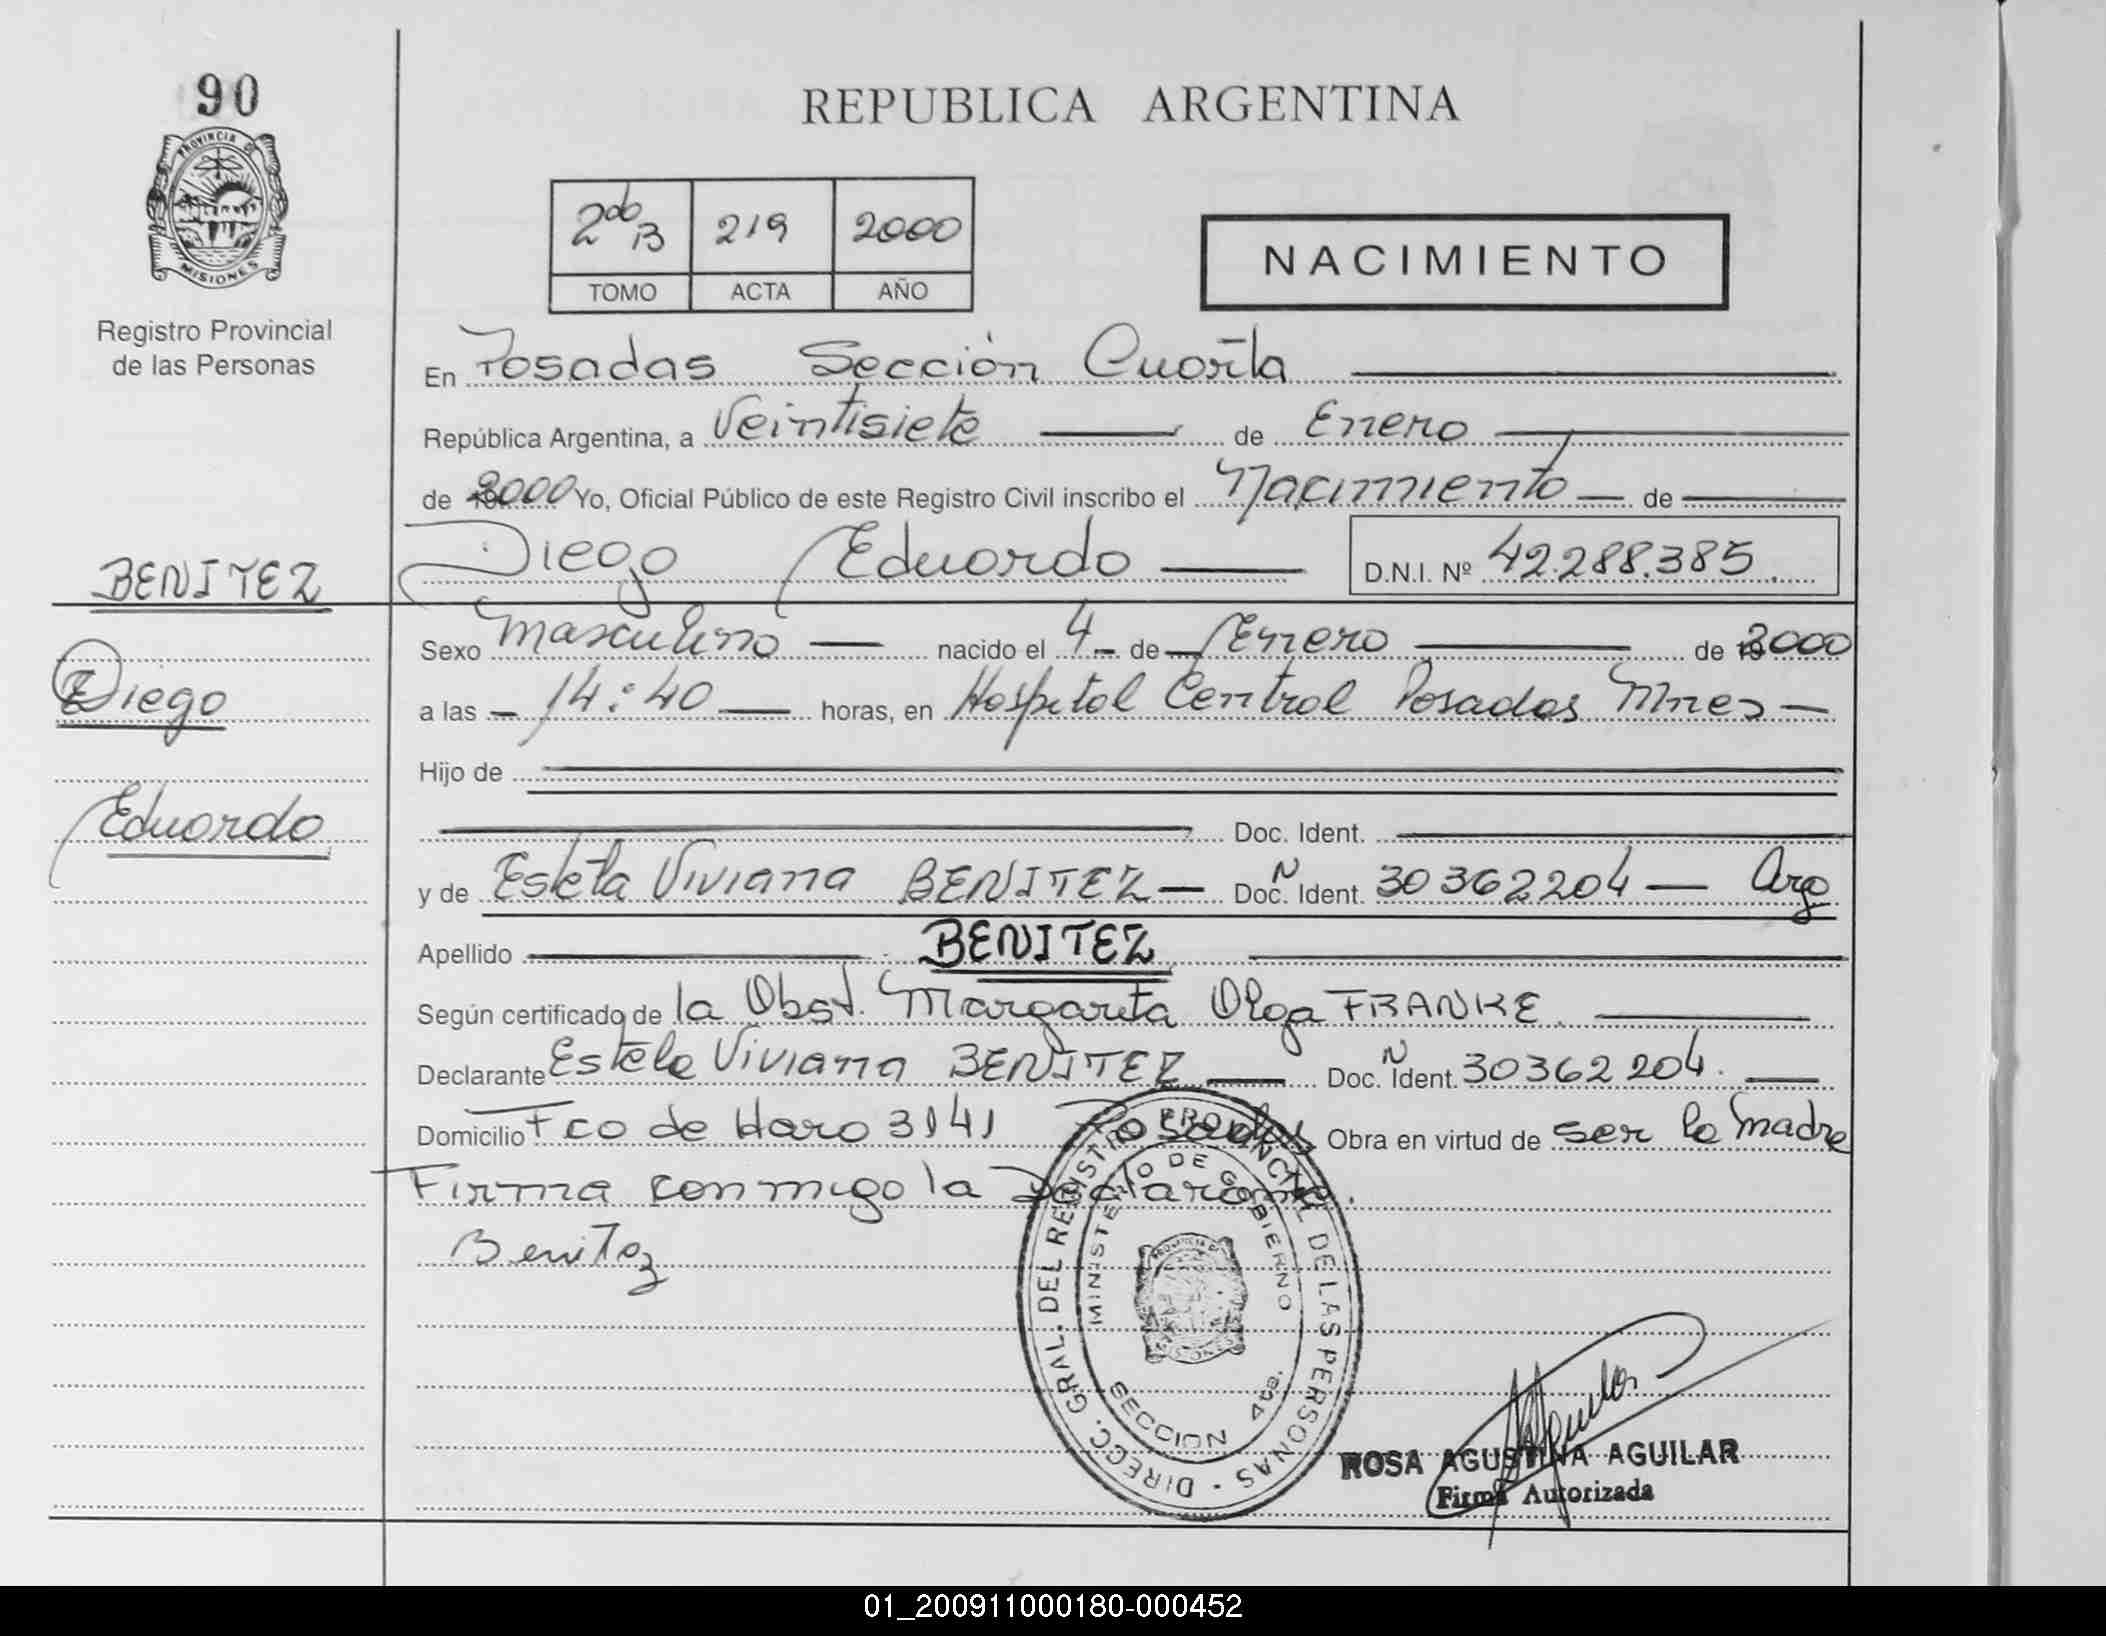 90
PROVINCIA DE
MISIONES
Registro Provincial
de las Personas
REPUBLICA ARGENTINA
2do B 219 2000
TOMO ACTA AÑO
NACIMIENTO
En Posadas Sección Cuarta
República Argentina, a Veintisiete de Enero
de 2000 Yo, Oficial Público de este Registro Civil inscribo el Nacimiento de
Diego Eduardo D.N.I. Nº 42.288.385
BENITEZ
Diego
Eduardo
Sexo Masculino nacido el 4 de Enero de 2000
a las 14:40 horas, en Hospital Central Posadas Mnes
Hijo de
Doc. Ident.
y de Estela Viviana BENITEZ Doc. N Ident. 30362204 Arg
Apellido BENITEZ
Según certificado de la Obst. Margarita Olga FRANKE
Declarante Estela Viviana BENITEZ Doc. N Ident. 30362204.
Domicilio Fco de Haro 3141 Posadas Obra en virtud de ser la madre
Firma conmigo la Declarante.
Benitez
DIRECC. GRAL. DEL REGISTRO PROVINCIAL DE LAS PERSONAS
MINISTERIO DE GOBIERNO
SECCION 4ta.
Aguilar
ROSA AGUSTINA AGUILAR
Firma Autorizada
01_200911000180-000452